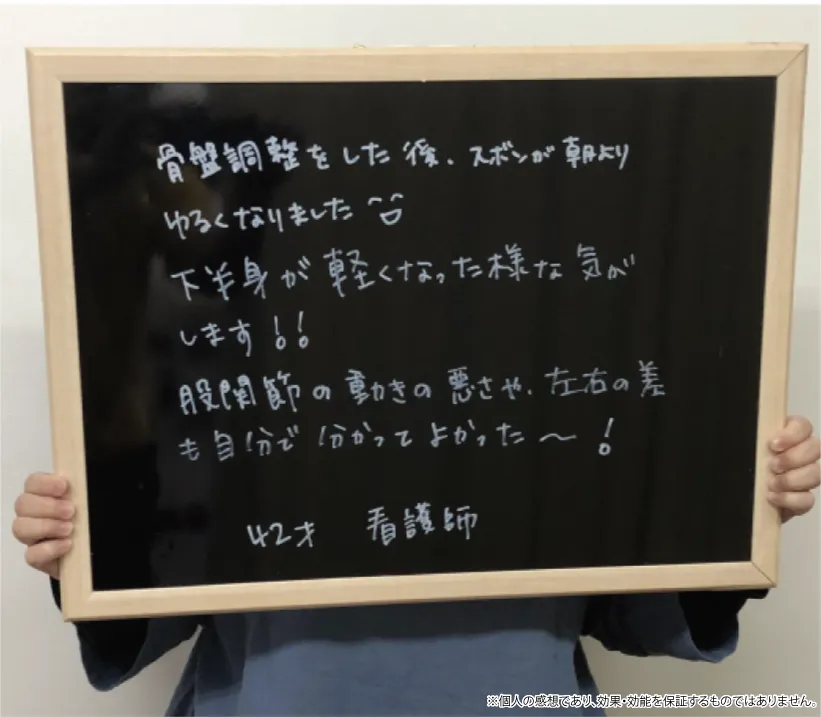 骨盤調整をした後、ズボンが朝より
ゆるくなりました
下半身が軽くなった様な気が
します!!
股関節の動きの悪さや、左右の差
も自分で分かってよかった〜!
42才 看護師
※個人の感想であり、効果・効能を保証するものではありません。